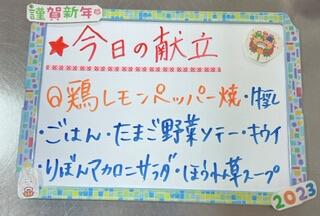 謹賀新年
★今日の献立
㊐鶏レモンペッパー焼・牛乳
・ごはん・たまご野菜ソテー・キウイ
・りぼんマカロニサラダ・ほうれん草スープ
2023